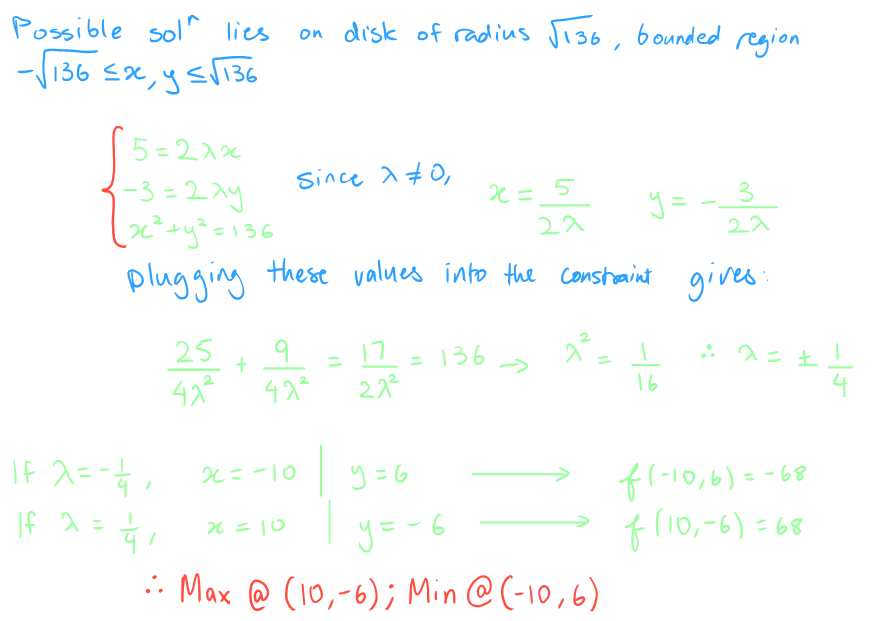 Possible solⁿ lies on disk of radius √136, bounded region
-√136 ≤ x, y ≤ √136
5 = 2λx
-3 = 2λy since λ ≠ 0, x = 5/2λ y = -3/2λ
x² + y² = 136
plugging these values into the constraint gives:
25/4λ² + 9/4λ² = 17/2λ² = 136 → λ² = 1/16 ∴ λ = ± 1/4
If λ = -1/4, x = -10 | y = 6 → f(-10, 6) = -68
If λ = 1/4, x = 10 | y = -6 → f(10, -6) = 68
∴ Max @ (10, -6); Min @ (-10, 6)